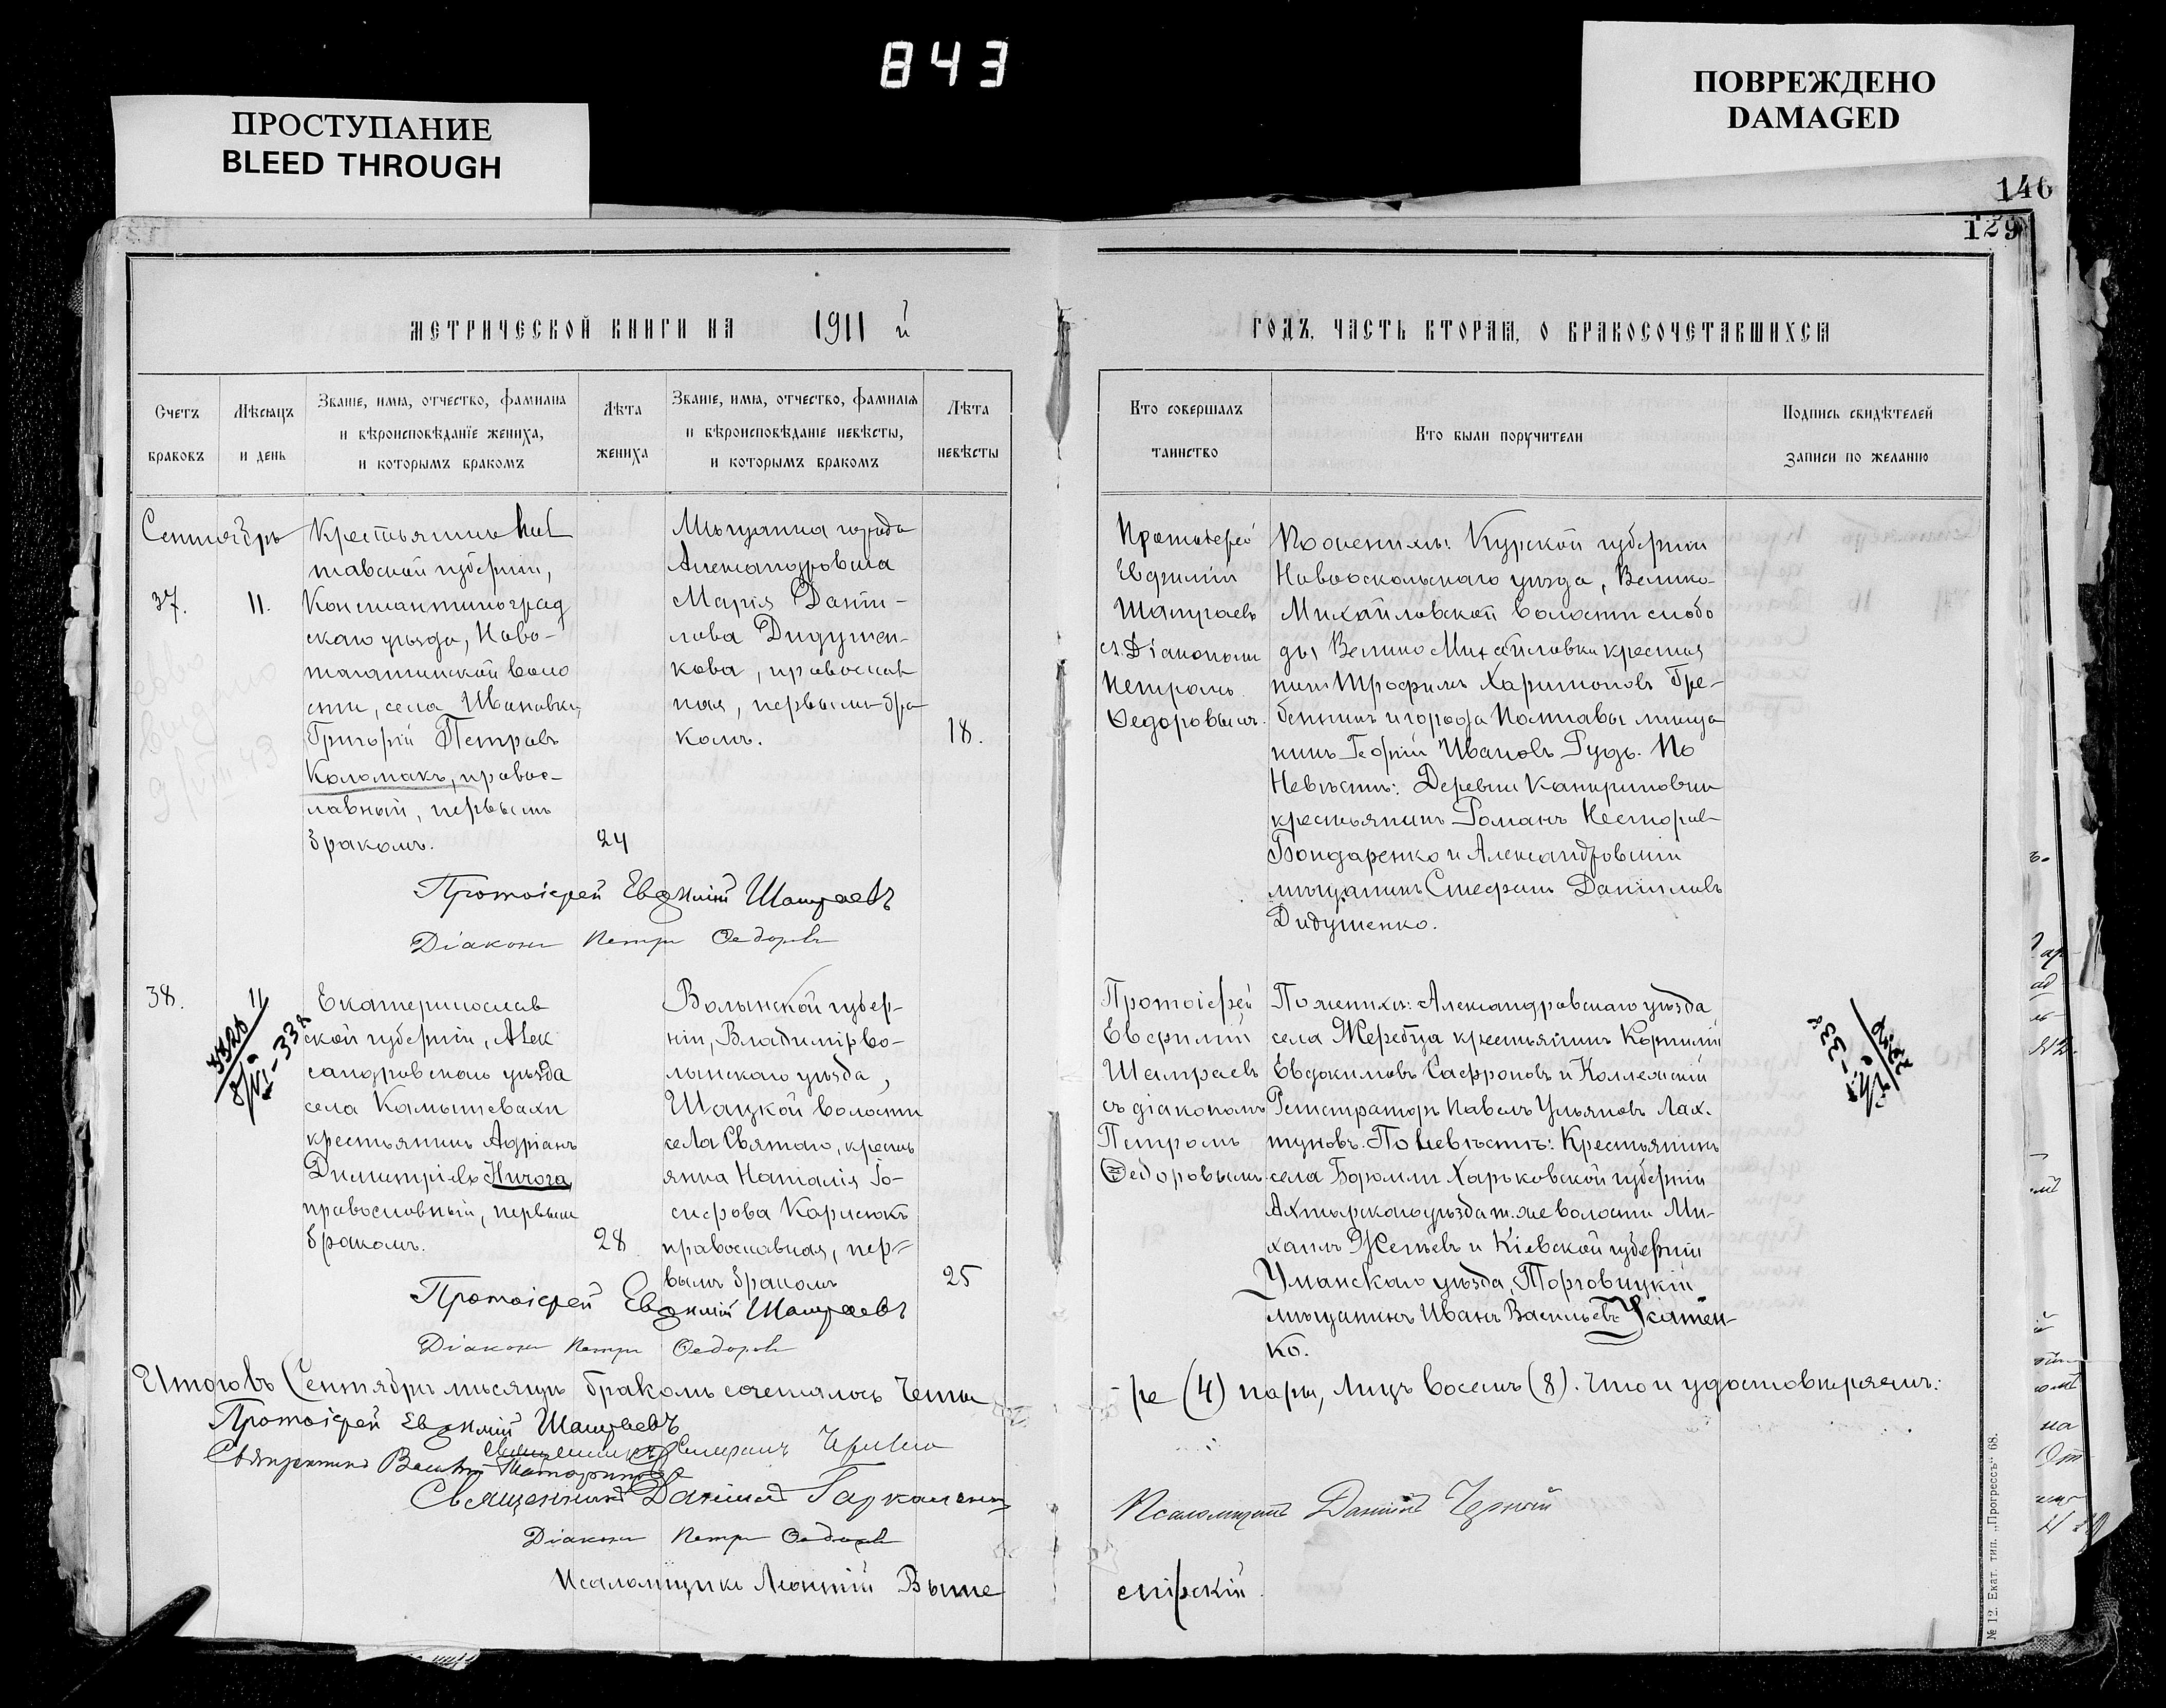 843
ПРОСТУПАНИЕ
BLEED THROUGH
ПОВРЕЖДЕНО
DAMAGED
146
129
МЕТРИЧЕСКОЙ КНИГИ НА 1911 й
ГОДЪ, ЧАСТЬ ВТОРАЯ, О БРАКОСОЧЕТАВШИХСЯ
Счетъ браковъ
Мѣсяцъ и день
Званіе, имя, отчество, фамилиа
и вѣроисповѣданіе жениха,
и которымъ бракомъ
Лѣта жениха
Званіе, имя, отчество, фамилія
и вѣроисповѣданіе невѣсты,
и которымъ бракомъ
Лѣта невѣсты
Кто совершалъ
таинство
Кто были поручители
Подпись свидѣтелей
записи по желанію
Сентябрь
37.
11.
Крестьянинъ Пол
тавской губерніи,
Константиноград
скаго уѣзда, Ново-
тагамлицкой воло
сти, села Ивановки,
Григорій Петровъ
Коломакъ, правос-
лавный, первымъ
бракомъ.
24
Мѣщанка города
Александровска
Марія Даніи-
лова Дидушен-
кова, православ
ная, первымъ бра
комъ.
18.
Протоіерей
Евфимій
Шатраевъ
съ Діакономъ
Петромъ
Федоровымъ.
По женихѣ: Курской губерніи
Новооскольскаго уѣзда, Велико-
Михайловской волости слобо
ды Велико Михайловки крестья
нинъ Трофимъ Харитоновъ Гре-
бенникъ и города Полтавы мѣща
нинъ Георгій Ивановъ Рудь. По
Невѣстѣ: Деревни Канкриновки
крестьянинъ Романъ Несторов
Бондаренко и Александровскій
мѣщанинъ Стефанъ Данииловъ
Дидушенко.
Протоіерей Евфимій Шатраевъ
Діаконъ Петръ Федоровъ
38.
11
Екатеринослав
ской губерніи, Алек
сандровскаго уѣзда
села Камышевахи
крестьянинъ Адріанъ
Димитріевъ Ничога
православный, первымъ
бракомъ.
28
Волынской губер-
ніи, Владимірво-
лынскаго уѣзда,
Шацкой волости
села Святаго, кресть
янка Наталія Іо-
сифова Карпюкъ
православная, пер-
вымъ бракомъ
25
Протоіерей
Евфимій
Шатраевъ
съ діакономъ
Петромъ
Федоровымъ
По женихѣ: Александровскаго уѣзда
села Жеребца крестьянинъ Корнилій
Евдокимовъ Сафроновъ и Коллежскій
Регистраторъ Павелъ Ульяновъ Лах-
туновъ. По невѣстѣ: Крестьянинъ
села Боромли Харьковской губерніи
Ахтырскаго уѣзда т. же волости Ми-
хаилъ и Кіевской губерніи
Уманскаго уѣзда, Торговицкій
мѣщанинъ Иванъ Васильевъ
ко.
Протоіерей Евфимій Шатраевъ
Діаконъ Петръ Федоровъ
Итого въ Сентябрѣ мѣсяцѣ бракомъ сочеталось четы
-ре (4) пары, лицъ восемь (8). Что и удостовѣряемъ:
Протоіерей Евфимій Шатраевъ
Священникъ Стефанъ
Священникъ
Священникъ Даніилъ
Діаконъ Петръ Федоровъ
Псаломщикъ Даніилъ Черный
Псаломщикъ Леонтій Выше
мірскій.
№ 12. Екат. тип. „Прогрессъ“ 68.